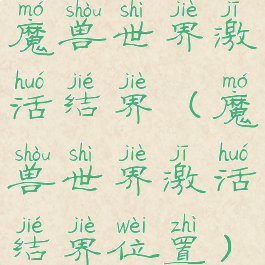 mó shòu shì jiè jī
魔兽世界激
huó jié jiè mó
活结界（魔
shòu shì jiè jī huó
兽世界激活
jié jiè wèi zhì
结界位置）